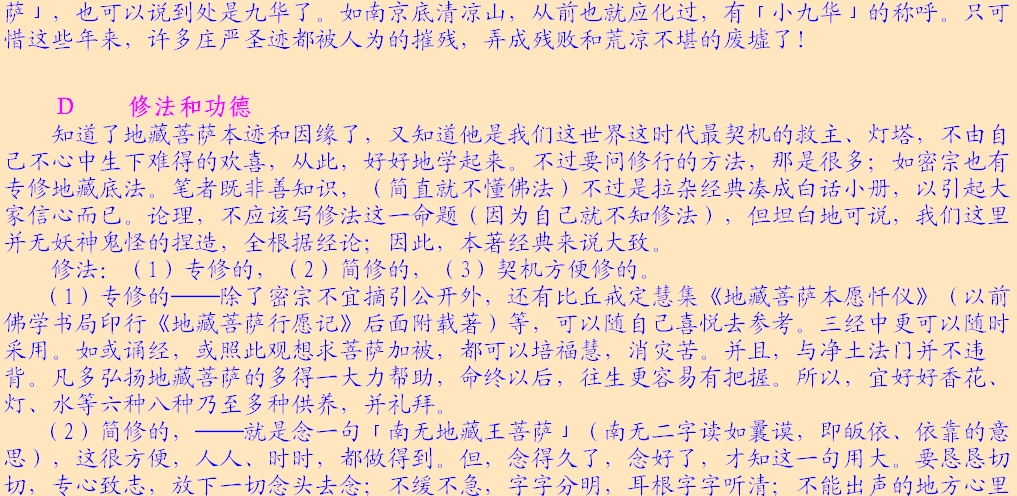 萨」，也可以说到处是九华了。如南京底清凉山，从前也就应化过，有「小九华」的称呼。只可
惜这些年来，许多庄严圣迹都被人为的摧残，弄成残败和荒凉不堪的废墟了！
D 修法和功德
知道了地藏菩萨本迹和因缘了，又知道他是我们这世界这时代最契机的救主、灯塔，不由自
己不心中生下难得的欢喜，从此，好好地学起来。不过要问修行的方法，那是很多；如密宗也有
专修地藏底法。笔者既非善知识，（简直就不懂佛法）不过是拉杂经典凑成白话小册，以引起大
家信心而已。论理，不应该写修法这一命题（因为自己就不知修法），但坦白地可说，我们这里
并无妖神鬼怪的捏造，全根据经论；因此，本著经典来说大致。
修法：（1）专修的，（2）简修的，（3）契机方便修的。
（1）专修的——除了密宗不宜摘引公开外，还有比丘戒定慧集《地藏菩萨本愿忏仪》（以前
佛学书局印行《地藏菩萨行愿记》后面附载著）等，可以随自己喜悦去参考。三经中更可以随时
采用。如或诵经，或照此观想求菩萨加被，都可以培福慧，消灾苦。并且，与净土法门并不违
背。凡多弘扬地藏菩萨的多得一大力帮助，命终以后，往生更容易有把握。所以，宜好好香花、
灯、水等六种八种乃至多种供养，并礼拜。
（2）简修的，——就是念一句「南无地藏王菩萨」（南无二字读如曩谟，即皈依、依靠的意
思），这很方便，人人、时时，都做得到。但，念得久了，念好了，才知这一句用大。要恳恳切
切，专心致志，放下一切念头去念；不缓不急，字字分明，耳根字字听清；不能出声的地方心里